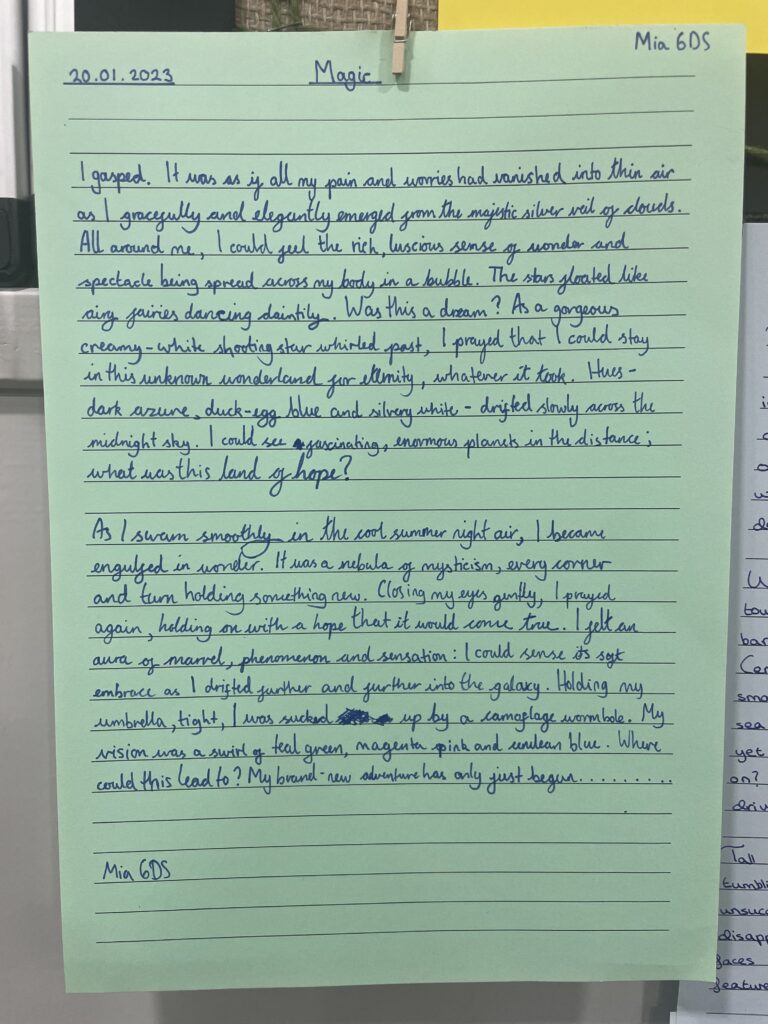 Mia 6DS
20.01.2023 Magic
I gasped. It was as if all my pain and worries had vanished into thin air
as I gracefully and elegantly emerged from the majestic silver veil of clouds.
All around me, I could feel the rich, luscious sense of wonder and
spectacle being spread across my body in a bubble. The stars floated like
airy fairies dancing daintily. Was this a dream? As a gorgeous
creamy-white shooting star whirled past, I prayed that I could stay
in this unknown wonderland for eternity, whatever it took. Hues -
dark azure, duck-egg blue and silvery white - drifted slowly across the
midnight sky. I could see fascinating, enormous planets in the distance;
what was this land of hope?
As I swam smoothly in the cool summer night air, I became
engulfed in wonder. It was a nebula of mysticism, every corner
and turn holding something new. Closing my eyes gently, I prayed
again, holding on with a hope that it would come true. I felt an
aura of marvel, phenomenon and sensation: I could sense its soft
embrace as I drifted further and further into the galaxy. Holding my
umbrella, tight, I was sucked up by a camoflage wormhole. My
vision was a swirl of teal green, magenta pink and cerulean blue. Where
could this lead to? My brand-new adventure has only just begun.........
Mia 6DS
sea
yet
on?
Tall
faces